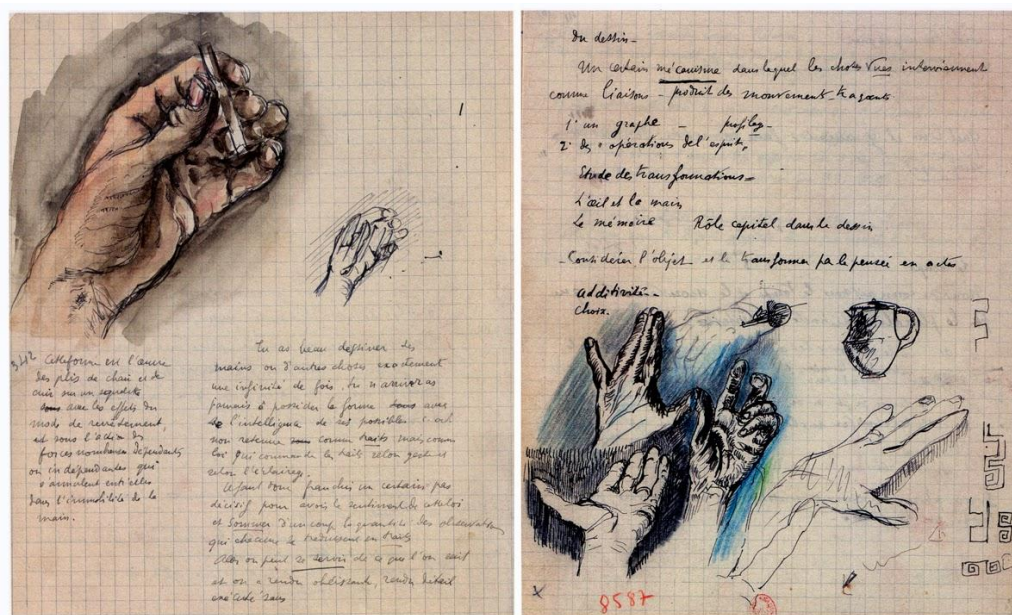 1
342 Cette forme est l'œuvre
des plis de chair et de
cuir sur un squelette
avec les effets du
mode de revêtement,
et sous l'action des
forces nombreuses dépendantes
ou indépendantes qui
s'annulent entr'elles
dans l'immobilité de la
main.
Tu as beau dessiner des
mains ou d'autres choses exactement
une infinité de fois, tu n'arriveras
jamais à posséder la forme avec
l'intelligence de ses possibles
non retenue comme traits mais comme
loi qui commande les traits selon gestes et
selon l'éclairage.
Il faut donc franchir un certain pas
décisif pour avoir le sentiment de cette loi
et sommer d'un coup la quantité des observations
qui chacune se traduisent en traits
Alors on peut se servir de ce que l'on sait
et on a rendu obéissant, rendu détail
exécuté sans
Du dessin -
Un certain mécanisme dans lequel les choses vues interviennent
comme liaisons - produit des mouvements traçants
1° un graphe - profilage -
2° des "opérations de l'esprit"
Etude des transformations -
L'œil et la main
La mémoire Rôle capital dans le dessin
- Considérer l'objet et le transformer par la pensée en actes
additivité -
Choix.
8587